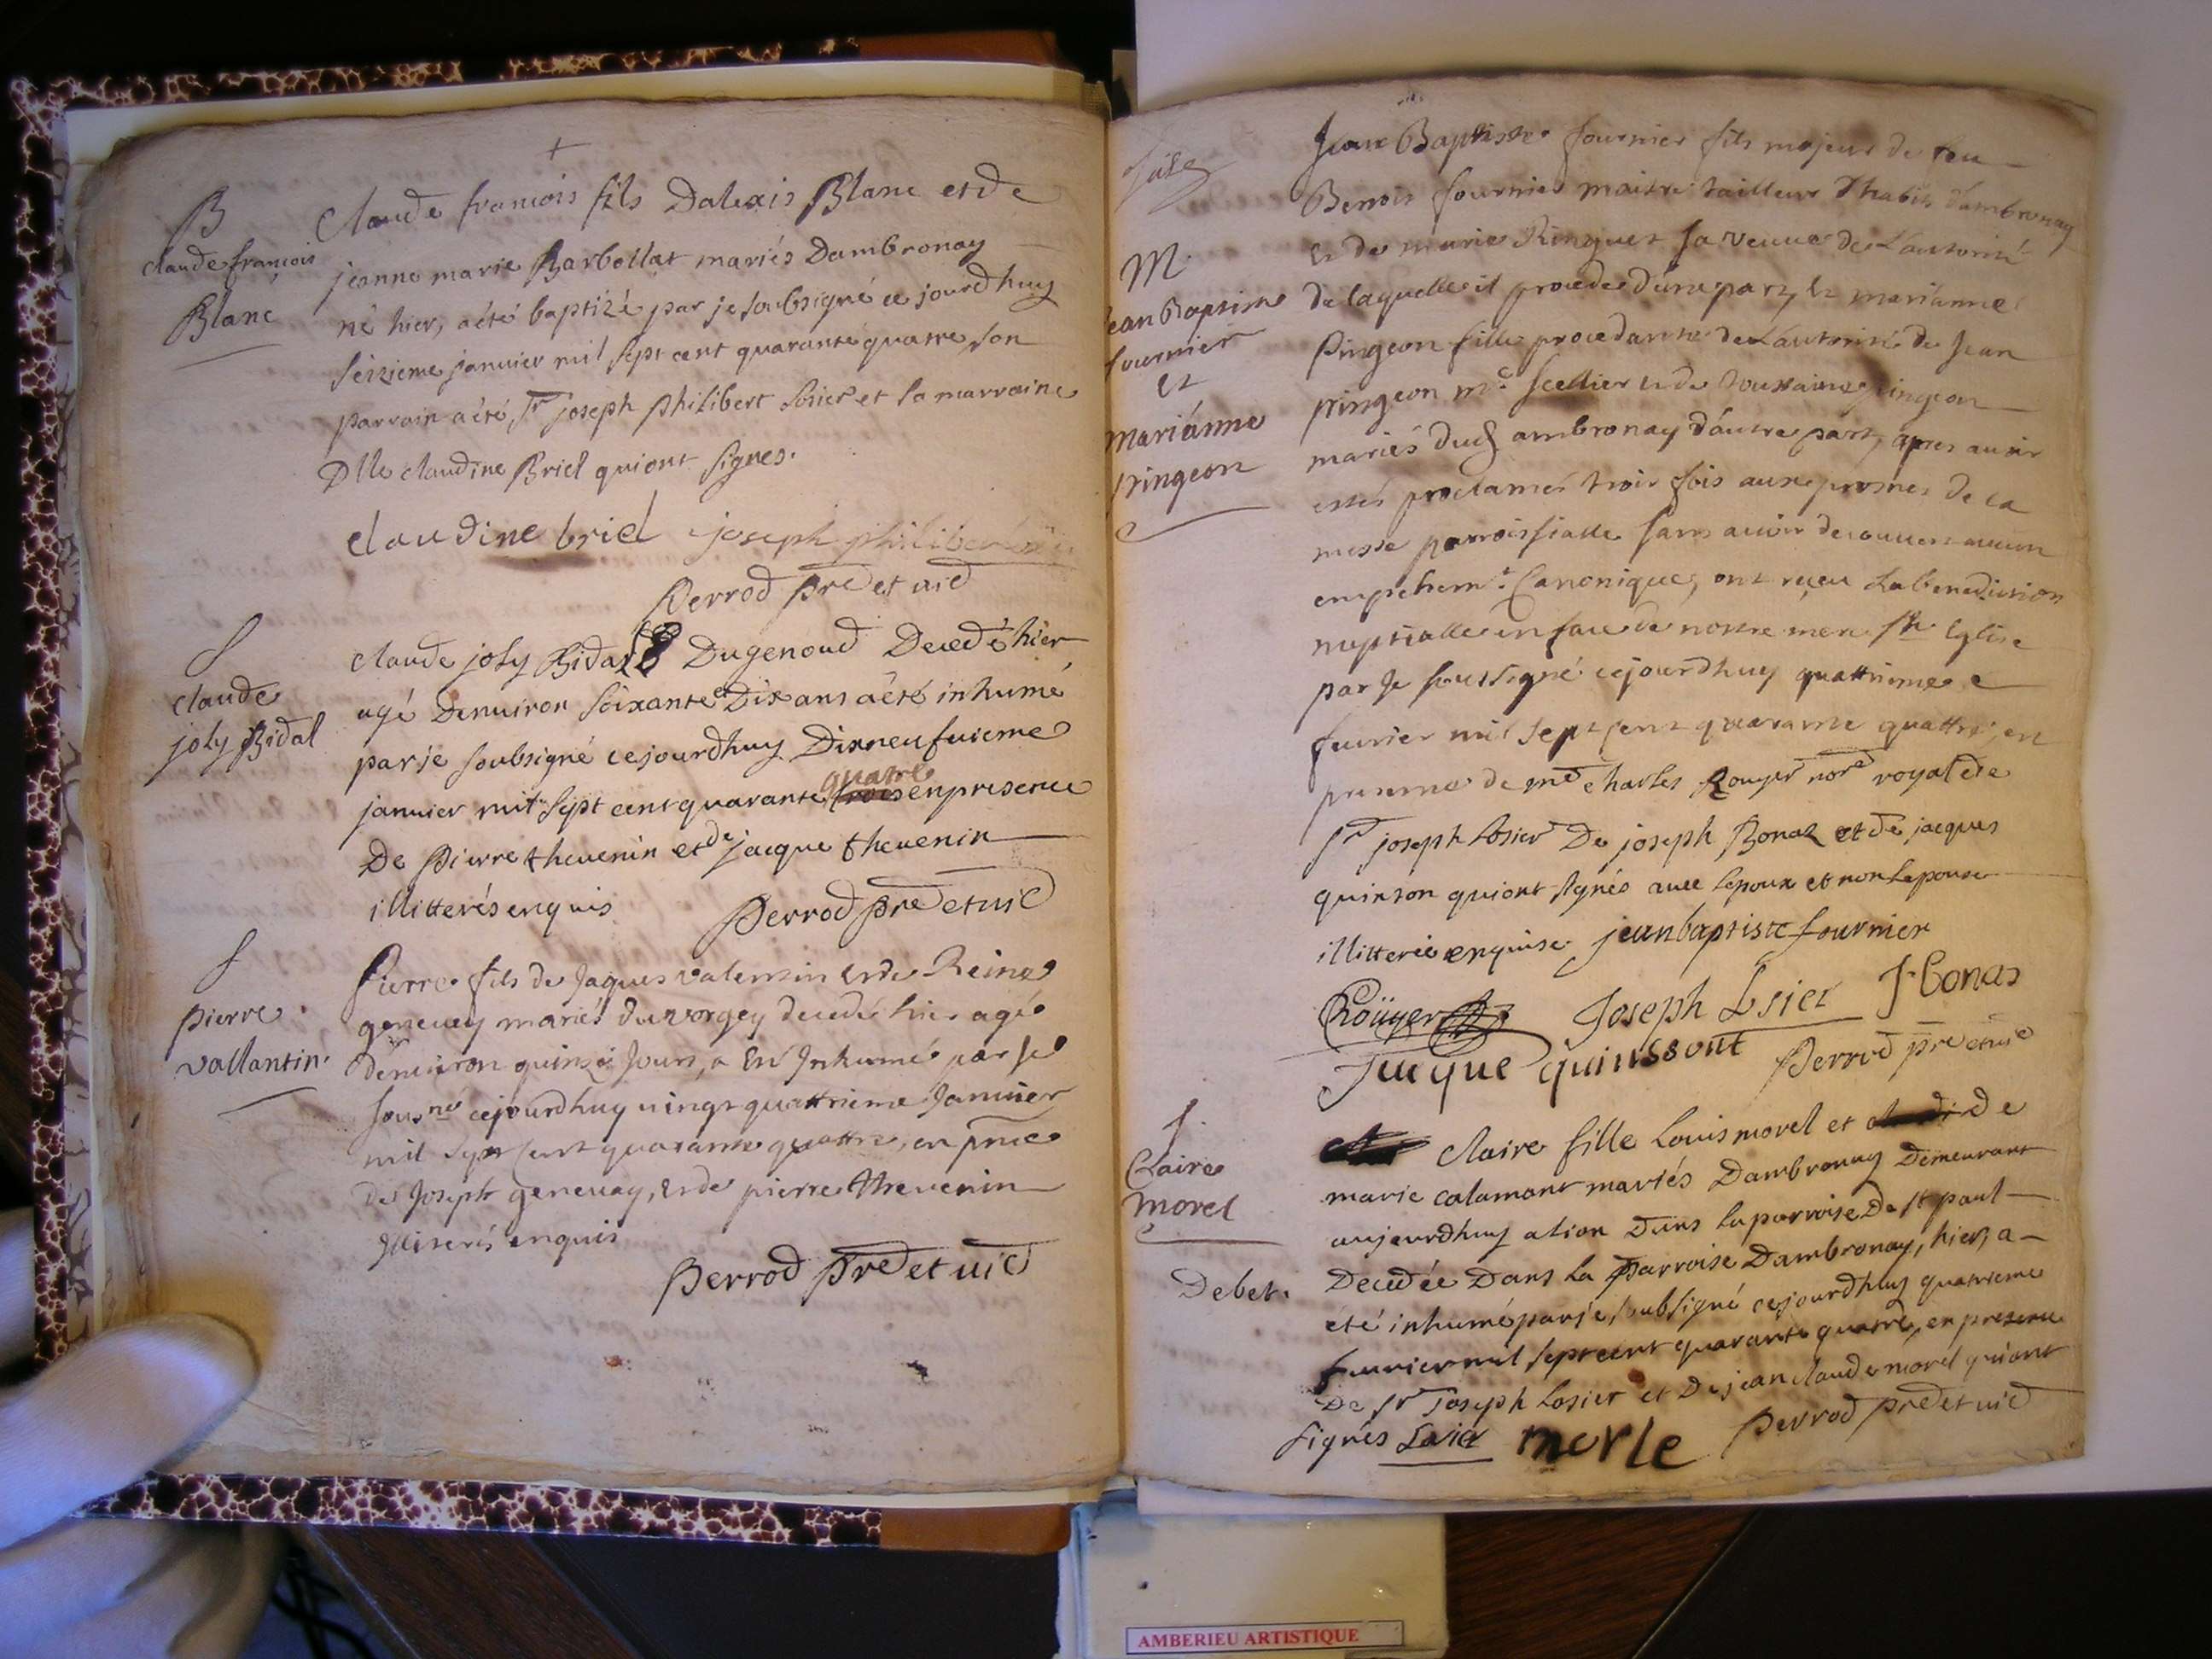 B
claude francois
Blanc
claude francois fils Dalexis Blanc et de
jeanne marie Barbollat mariés Dambronay
né hier, a été baptizé par je soubsigné ce jourdhuy
seizieme janvier mil sept cent quarante quatre, son
parrain a été, Sr joseph philibert Losier et la marraine
Dlle claudine Briel qui ont signes.
claudine briel joseph philibert
Perrod pre et vic
S
claude
joly Bidal
claude joly Bidal Dugenoud Decedé hier
agé Denuiron soixante Dix ans a été inhumé
par je soubsigné cejourdhuy Dixneufuieme
quatre
januier mil sept cent quarante trois en presence
De Pierre theuenin et de jacque theuenin
illitterés enquis Perrod pre et vic
S
pierre
vallantin.
Pierre fils de Jaques valensin et de Reine
geneuay mariés du vorgey decedé hier agé
denuiron quinze Jours, a eté Inhumé par je
sousné cejourdhuy uingt quattrieme Januier
mil sept cent quarante quattre, en pnce
de Joseph geneuay, et de pierre theuenin
Illiterés enquis
Perrod pre et vic
M.
jean Baptiste
fournier
et
marianne
pingeon
Jean Baptiste fournier fils majeur de feu
Benois fournier maitre tailleur dhabits dambronay
et de marie Ringuet sa veuue de Lautorité
de laquelle il procede dune part, et marianne
Pingeon fille procedante de Lautorité de Jean
pingeon me scellier et de toussainte pingeon
mariés dud ambronay dautre part, apres auoir
estés proclamés trois fois aux prosnes de la
messe parroissialle sans auoir decouuert aucun
empehemt Canonique, ont reçeu La benediction
nuptialle en face de nostre mere ste Eglise
par Je soussigné cejourdhuy quattrieme
feurier mil sept cent quarante quattre, en
presence de me charles Rouyer nore royal et de
sr joseph Losier De joseph Bonaz et de jacques
quinson qui ont signés auec lepoux et non lepouse
illitterée enquise jean baptiste fournier
Roüyer Joseph Lsier J. bonas
Jacque quinssont Perrod pre et vic
S.
Claire
morel
Debet.
Claire fille Louis morel et de
marie calamant mariés Dambronay Demeurant
aujourdhuy a lion Dans la parroise De st paul
Decedée Dans la Parroise Dambronay, hier, a
été inhumé par je soubsigné cejourdhuy quatrieme
feurier mil sept cent quarante quatre, en presence
De sr Joseph Losier et De jean claude morel qui ont
signés Losier merle Perrod pre et vic
AMBERIEU ARTISTIQUE